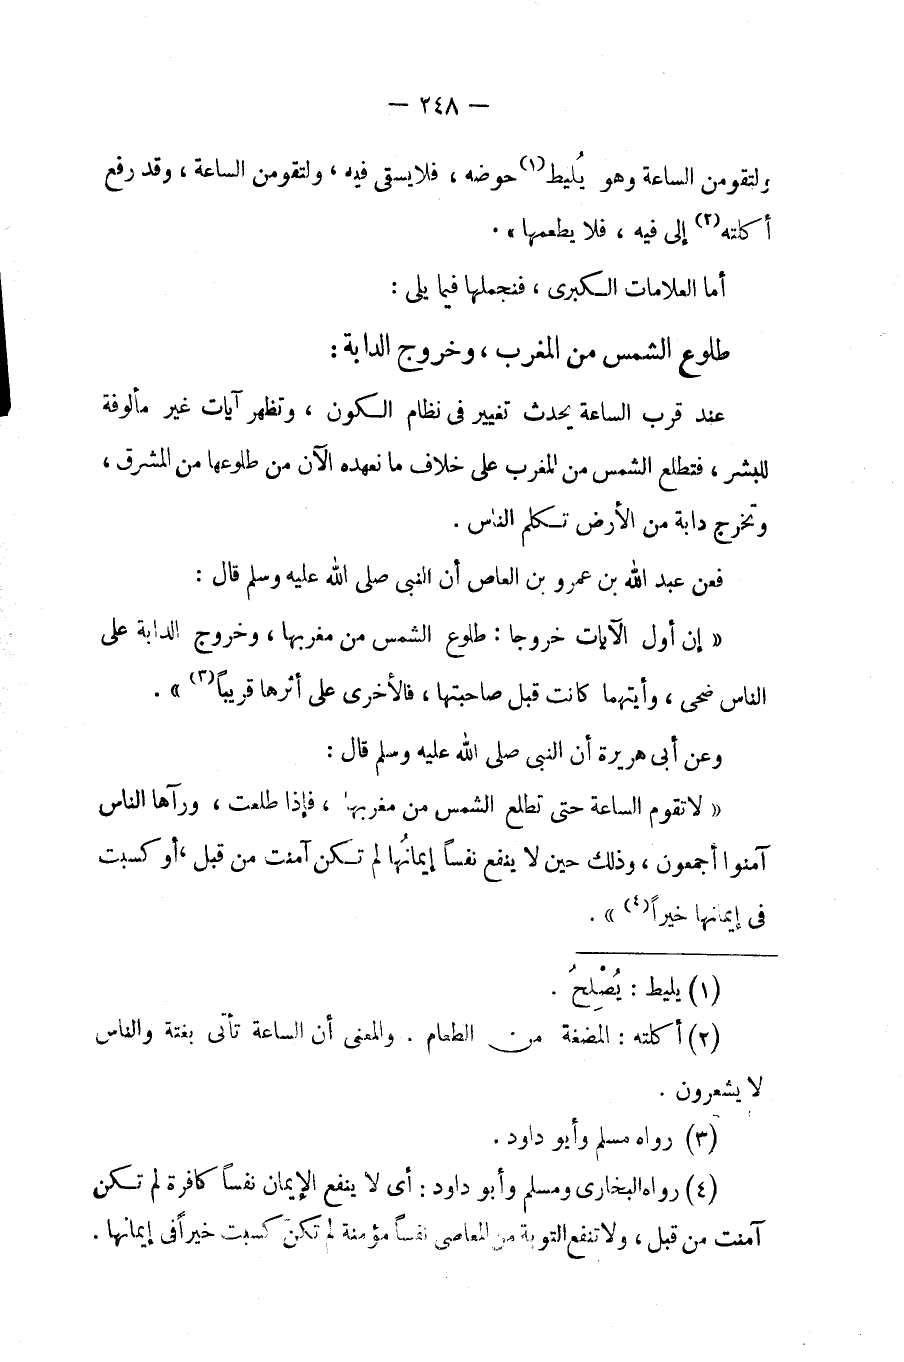 — ٢٤٨ —
ولتقومن الساعة وهو يُليط(١) حوضه ، فلا يسقى فيه ، ولتقومن الساعة ، وقد رفع
أكلته(٢) إلى فيه ، فلا يطعمها » .
أما العلامات الكبرى ، فنجملها فيما يلى :
طلوع الشمس من المغرب ، وخروج الدابة :
عند قرب الساعة يحدث تغيير فى نظام الكون ، وتظهر آيات غير مألوفة
للبشر ، فتطلع الشمس من المغرب على خلاف ما نعهده الآن من طلوعها من المشرق ،
وتخرج دابة من الأرض تكلم الناس .
فعن عبد الله بن عمرو بن العاص أن النبى صلى الله عليه وسلم قال :
« إن أول الآيات خروجا : طلوع الشمس من مغربها ، وخروج الدابة على
الناس ضحى ، وأيتهما كانت قبل صاحبتها ، فالأخرى على أثرها قريباً(٣) » .
وعن أبى هريرة أن النبى صلى الله عليه وسلم قال :
« لا تقوم الساعة حتى تطلع الشمس من مغربها ، فإذا طلعت ، ورآها الناس
آمنوا أجمعون ، وذلك حين لا ينفع نفساً إيمانُها لم تكن آمنت من قبل ، أو كسبت
فى إيمانها خيراً(٤) » .
(١) يليط : يُصْلِحُ .
(٢) أكلته : المضغة من الطعام . والمعنى أن الساعة تأتى بغتة والناس
لا يشعرون .
(٣) رواه مسلم وأبو داود .
(٤) رواه البخارى ومسلم وأبو داود : أى لا ينفع الإيمان نفساً كافرة لم تكن
آمنت من قبل ، ولا تنفع التوبة من المعاصى نفساً مؤمنة لم تكن كسبت خيراً فى إيمانها .